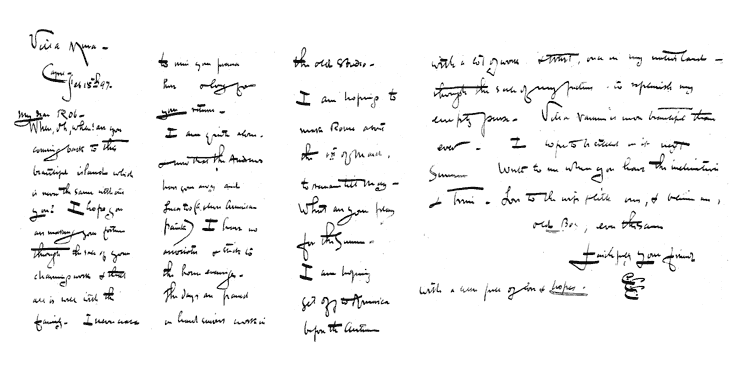 Villa Nina -
Capri
Feb 15th 97.
My dear Rob -
When, oh, when! are you
coming back to this
beautiful island which
is never the same without
you? I hope you
are making your fortune
through the sale of your
charming work & that
all is well with the
family. I never cease
to miss you
has so long for
your return.
I am quite alone.
and that the Andrews
have gone away and
American
painter) I have no
associate to
the home
The days are passed
in hard work in
the old Studio.
I am hoping to
reach Rome about
the 1st of March,
to remain till May -
What are your plans
for the Summer.
I am hoping
get off to America
before the Autumn
with a lot of work & trust, once in my native land -
through the sale of my pictures to replenish my
empty purse. Villa Nina is more beautiful than
ever. I hope to be settled in it next
Summer. Write to me when you have the inclination
& Time. Love to the wife & little ones, & believe me,
old Boy, ever the same
faithfully your friend
with a heart full of love & hopes.